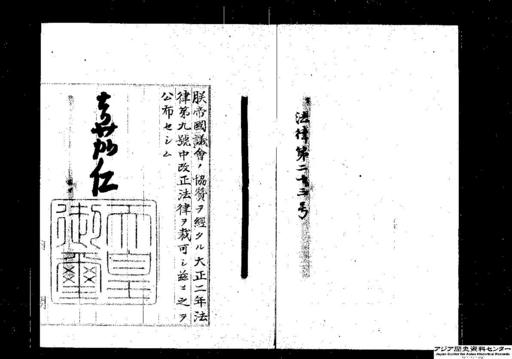 法律第二十三号
朕帝國議會ノ協賛ヲ經タル大正二年法
律第九號中改正法律ヲ裁可シ茲ニ之ヲ
公布セシム
嘉仁
天皇
御璽
アジア歴史資料センター
Japan Center for Asian Historical Records